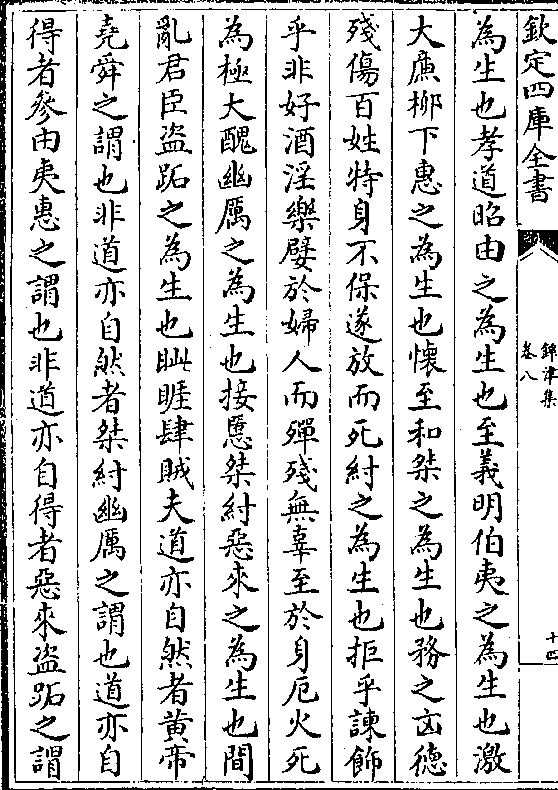 欽定四庫全書
鐔津集
卷八
十四
為生也孝道昭由之為生也至義明伯夷之為生也激
大廉栁下惠之為生也懐至和桀之為生也務之凶徳
殘傷百姓特身不保遂放而死紂之為生也拒乎諫飾
乎非好酒淫樂嬖於婦人而殫殘無辜至於身厄火死
為極大醜幽厲之為生也接慝桀紂惡來之為生也間
亂君臣盗跖之為生也眦睚肆賊夫道亦自然者黄帝
堯舜之謂也非道亦自然者桀紂幽厲之謂也道亦自
得者參由夷惠之謂也非道亦自得者惡來盗跖之謂